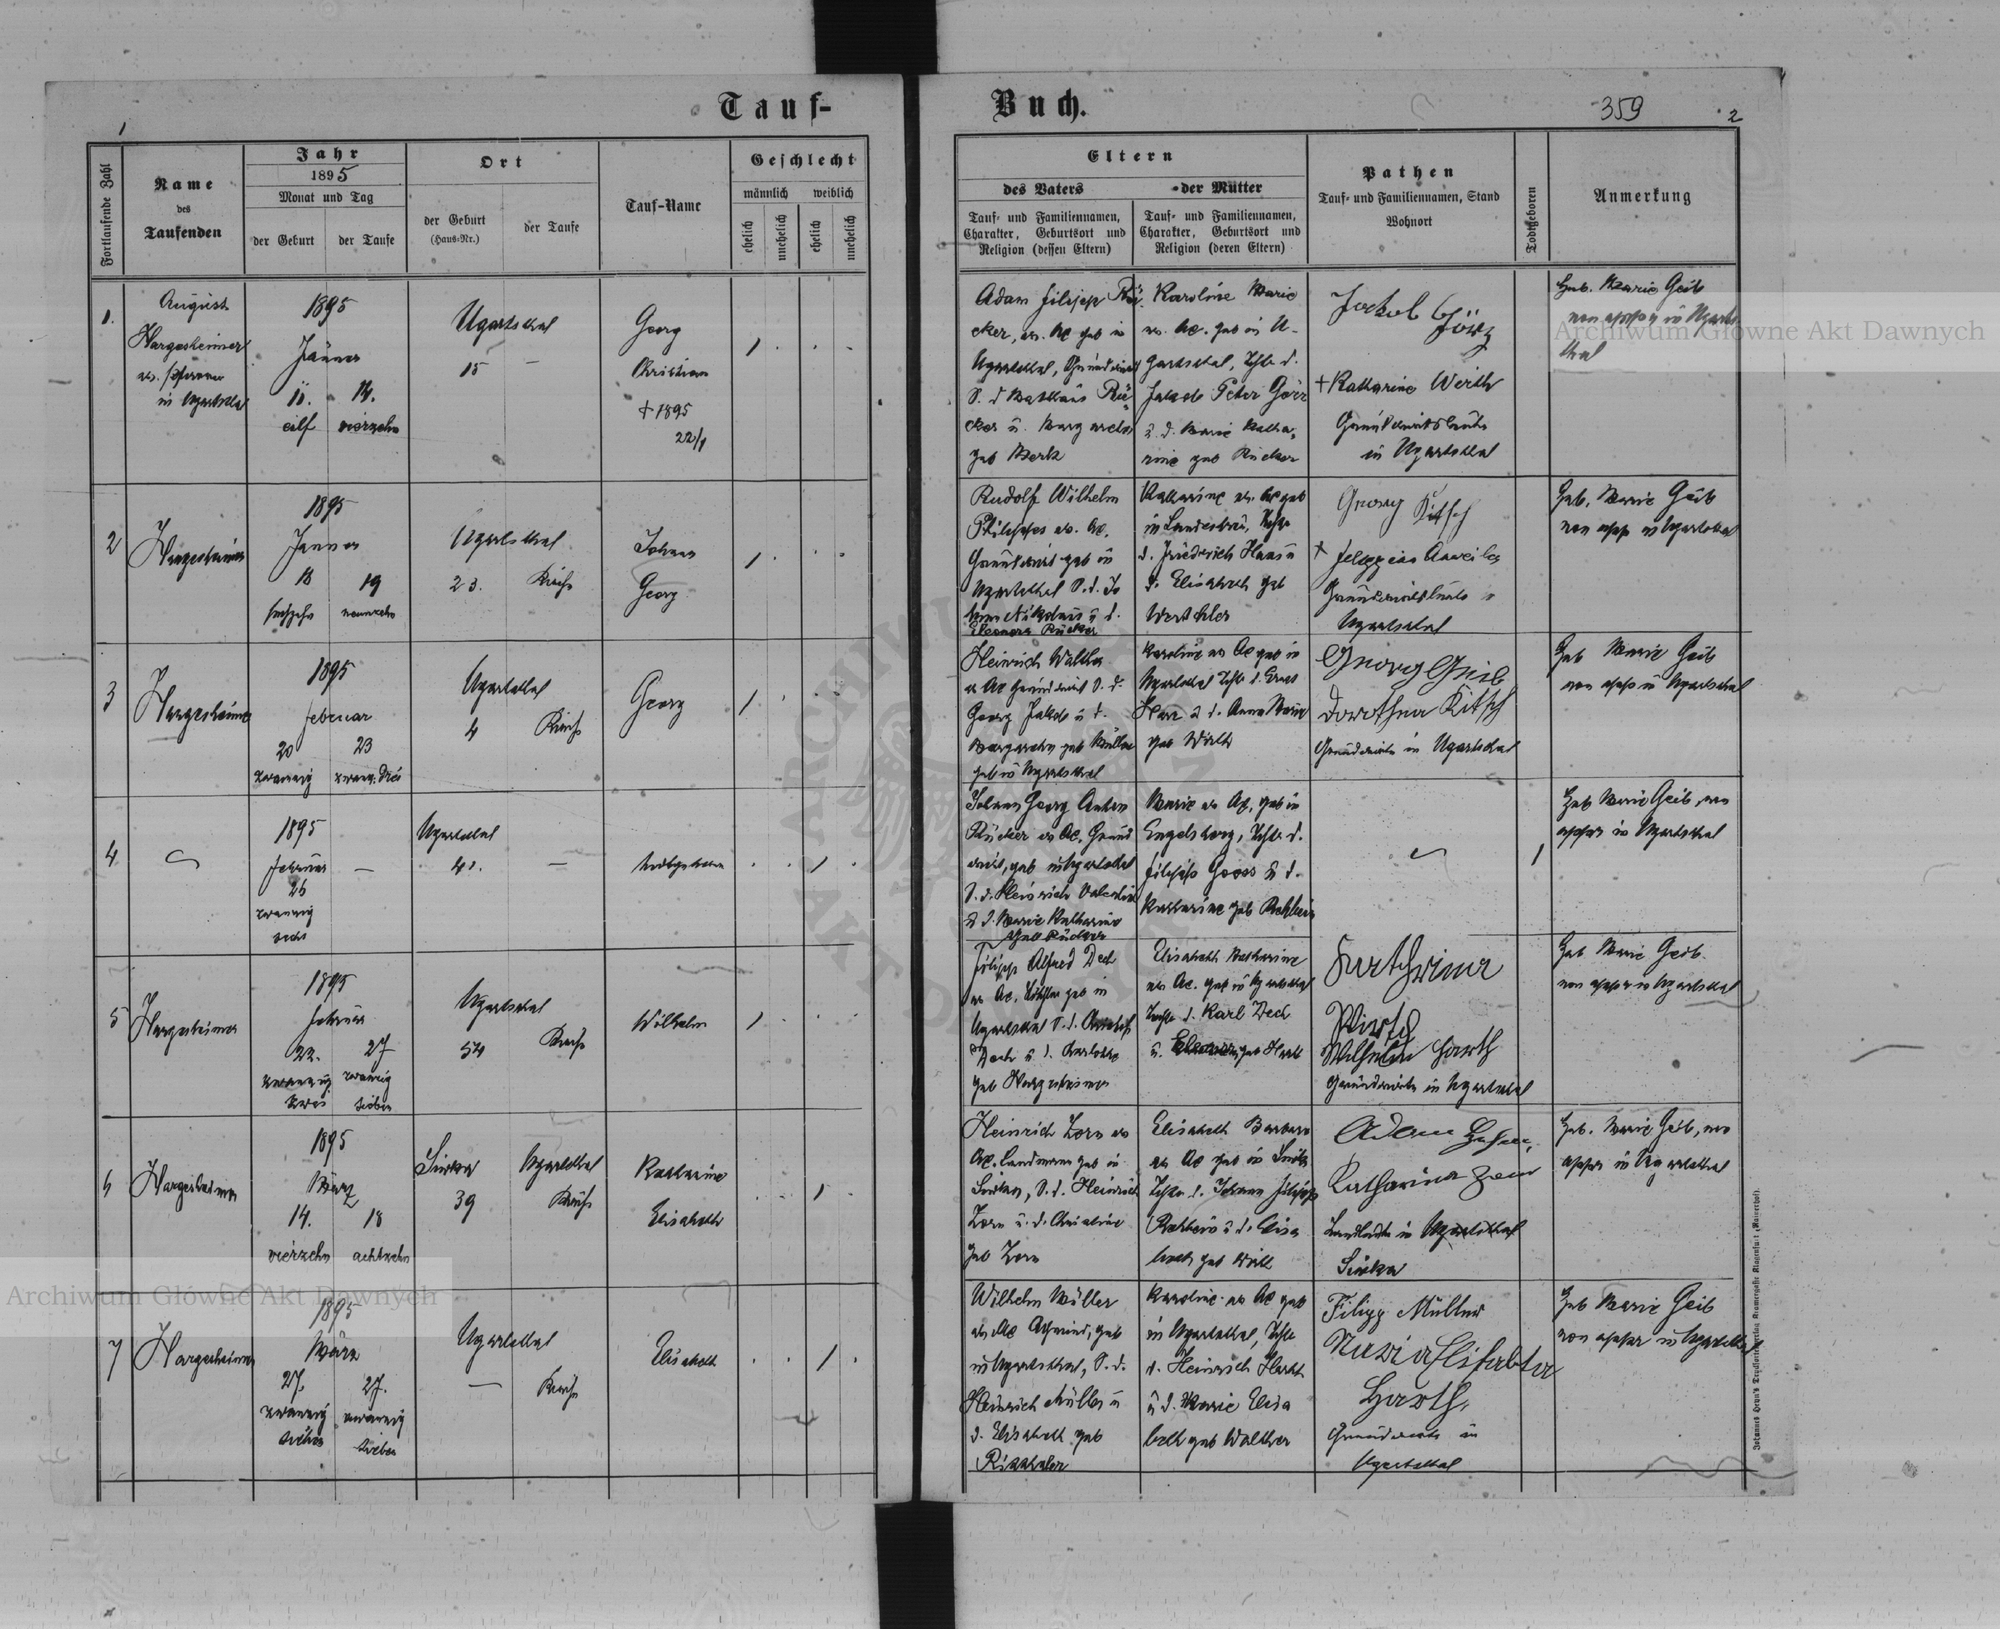 Tauf-
Buch.
359
1
2
Fortlaufende Zahl
Name
des
Taufenden
Jahr
1895
Monat und Tag
der Geburt
der Taufe
Ort
der Geburt
(Haus-Nr.)
der Taufe
Tauf-Name
Geschlecht
männlich
weiblich
ehelich
unehelich
ehelich
unehelich
Eltern
des Vaters
der Mütter
Tauf- und Familiennamen,
Charakter, Geburtsort und
Religion (dessen Eltern)
Tauf- und Familiennamen,
Charakter, Geburtsort und
Religion (deren Eltern)
Pathen
Tauf- und Familiennamen, Stand
Wohnort
Todtgeboren
Anmerkung
1.
August
Hargesheimer
in Ugartsthal
1895
Jänner
11.
14.
eilf
vierzehn
Ugartsthal
15
—
Georg
Christian
+ 1895
22/1
1
Adam Filipp Rü-
cker, ev. AC geb in
Ugartsthal, Grundwirt
S. d Mathäus Rü-
cker u. Margaretha
geb Merk
Karoline Marie
ev. AC. geb in U-
gartsthal, Tcht. d.
Jakob Peter Görz
u. d. Marie Katha-
rine geb Rücker
Jakob Görz
+ Katharine Wirth
Grundwirtsleute
in Ugartsthal
Heb. Marie Geib
non appr in Ugarts-
thal
2
Hargesheimer
1895
Jänner
18
19
neunzehn
Ugartsthal
23.
Kirche
Johann
Georg
1
Rudolf Wilhelm
Philippes ev. AC.
Grundwirt geb in
Ugartsthal S. d. Jo
hann Nikolaus u d.
Eleonora Rücker
Katharine ev. AC geb
in Landestreu, Tcht.
d. Friederich Haas u
d. Elisabeth geb
Georg Kitsch
+
Grundwirtsleute
Ugartsthal
Heb. Marie Geib
non appr in Ugartsthal
3
Hargesheimer
1895
Februar
20
23
zwanzig
zwanz. drei
Ugartsthal
4
Kirche
Georg
1
Heinrich Walther
ev AC Grundwirt S. d.
Georg Jakob u d.
Margaretha geb Müller
geb in Ugartsthal
Karoline ev AC geb in
Ugartsthal Tcht d. Ernst
u d. Anna Marie
geb Wirth
Georg Geib
Dorothea Kitsch
Grundwirte in Ugartsthal
Heb Marie Geib
non appr in Ugartsthal
4
1895
Februar
26
—
zwanzig
sechs
Ugartsthal
41.
—
todtgeboren
1
Johann Georg Anton
Rücker ev AC, Grund
wirt, geb in Ugartsthal
S. d. Heinrich Valentin
u d. Marie Katharine
geb Rücker
Marie ev AC, geb in
Engelsberg, Tcht. d.
Filipp Gooss u d.
Katharine geb Rehbein
1
Heb Marie Geib, non
appr in Ugartsthal
5
Hargesheimer
1895
Februar
22.
27
zwanzig
zwei
zwanzig
sieben
Ugartsthal
54
Kirche
Wilhelm
1
Filipp Alfred Dech
ev AC. geb in
Ugartsthal S. d.
Dech u d. Charlotte
geb Hargesheimer
Elisabeth Katharine
ev AC. geb in Ugartsthal
Tocht. d. Karl Dech
u.
Kathrina
Wirth
Wilhelm Harth
Grundwirte in Ugartsthal
Heb Marie Geib.
non appr in Ugartsthal
6
Hargesheimer
1895
März
14.
18
vierzehn
achtzehn
Siwka
39
Ugartsthal
Kirche
Katharine
Elisabeth
1
Heinrich Zorn ev
AC. Landmann geb in
Siwka, S. d. Heinrich
Zorn u. d. Christine
geb Zorn
Elisabeth Barbara
ev AC geb in
Tcht. d. Johann Filipp
Rehbein u d. Elisa
beth geb Wirth
Adam
Katharina Zorn
Landleute in Ugartsthal
Siwka
Heb. Marie Geib, non
appr in Ugartsthal
7
Hargesheimer
1895
März
27.
27.
zwanzig
sieben
zwanzig
sieben
Ugartsthal
—
Kirche
Elisabeth
1
Wilhelm Müller
ev AC geb
in Ugartsthal, S. d.
Heinrich Müller u
d. Elisabeth geb
Karoline ev AC geb
in Ugartsthal, Tcht
d. Heinrich Harth
u d. Marie Elisa
beth geb Walther
Filipp Müller
Maria Elisabeta
Harth,
Grundwirte in
Ugartsthal
Heb Marie Geib
non appr in Ugartsthal
Archiwum Główne Akt Dawnych
Archiwum Główne Akt Dawnych